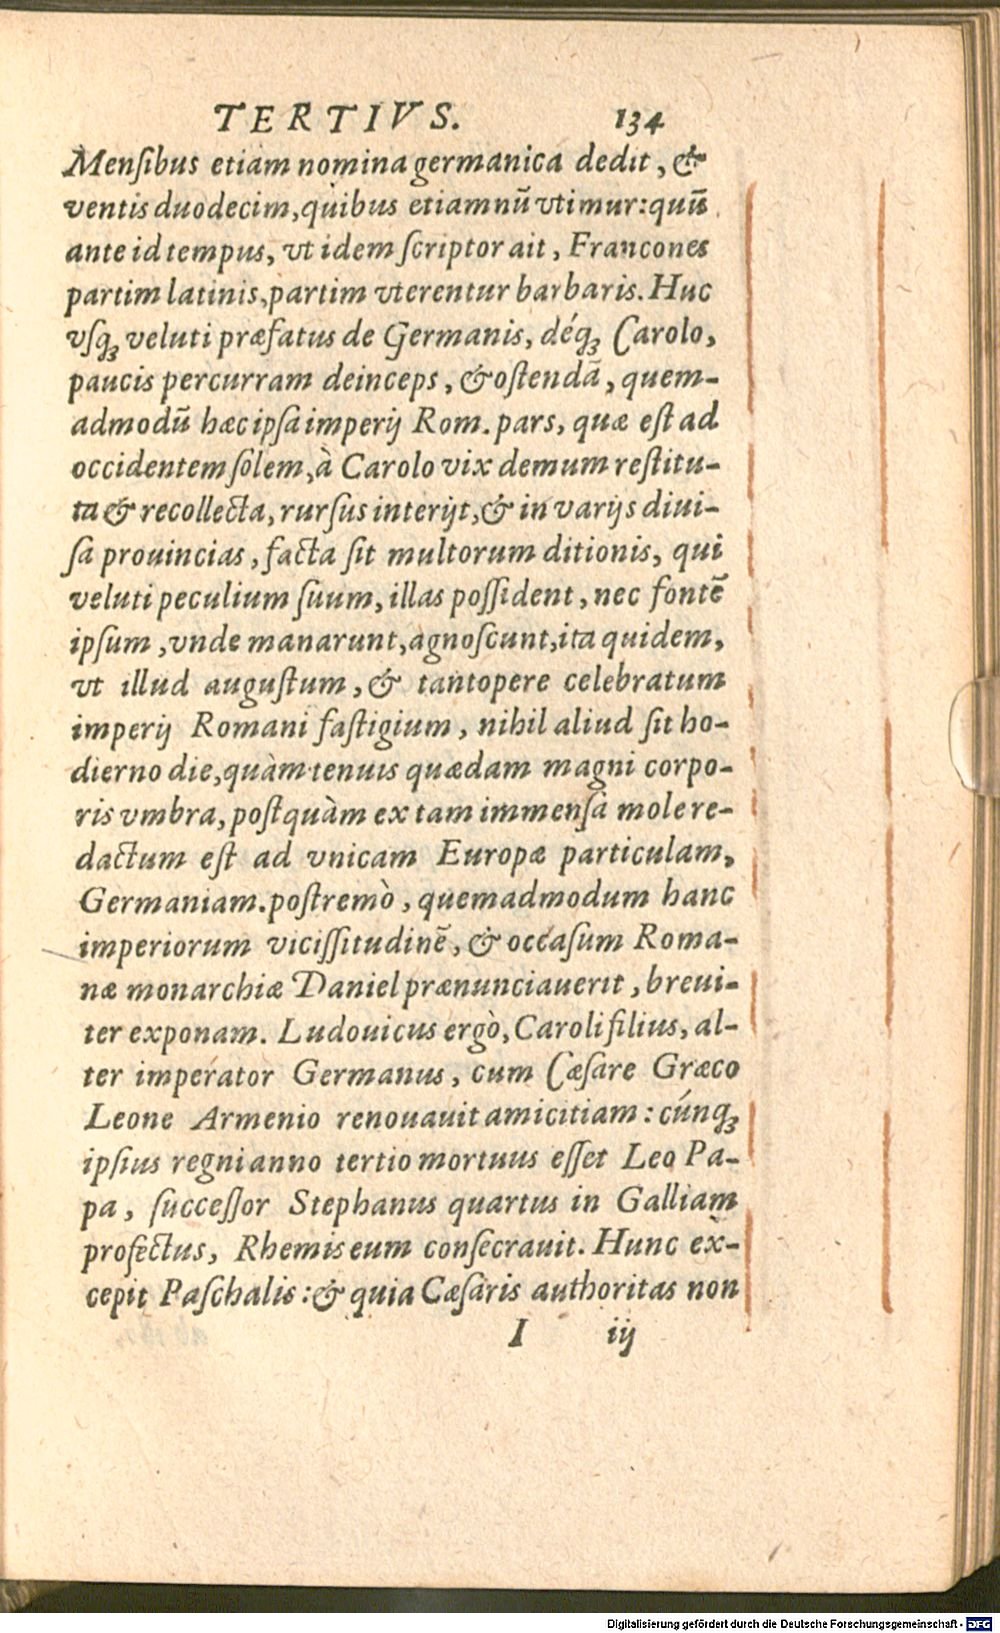 TERTIVS. 134
Menſibus etiam nomina germanica dedit, &
ventis duodecim, quibus etiamnū vtimur: quū
ante id tempus, vt idem ſcriptor ait, Francones
partim latinis, partim vterentur barbaris. Huc
vſqꝫ veluti præfatus de Germanis, déqꝫ Carolo,
paucis percurram deinceps, & oſtendā, quem-
admodū hæc ipſa imperij Rom. pars, quæ eſt ad
occidentem ſolem, à Carolo vix demum reſtitu-
ta & recollecta, rurſus interijt, & in varijs diui-
ſa prouincias, facta ſit multorum ditionis, qui
veluti peculium ſuum, illas poſſident, nec fontē
ipſum, vnde manarunt, agnoſcunt, ita quidem,
vt illud auguſtum, & tantopere celebratum
imperij Romani faſtigium, nihil aliud ſit ho-
dierno die, quàm tenuis quædam magni corpo-
ris vmbra, poſtquàm ex tam immenſa mole re-
dactum eſt ad vnicam Europæ particulam,
Germaniam. poſtremò, quemadmodum hanc
imperiorum viciſſitudinē, & occaſum Roma-
næ monarchiæ Daniel prænunciauerit, breui-
ter exponam. Ludouicus ergò, Caroli filius, al-
ter imperator Germanus, cum Cæſare Græco
Leone Armenio renouauit amicitiam: cúnqꝫ
ipſius regni anno tertio mortuus eſſet Leo Pa-
pa, ſucceſſor Stephanus quartus in Galliam
profectus, Rhemis eum conſecrauit. Hunc ex-
cepit Paſchalis: & quia Cæſaris authoritas non
I iij
Digitalisierung gefördert durch die Deutsche Forschungsgemeinschaft - DFG